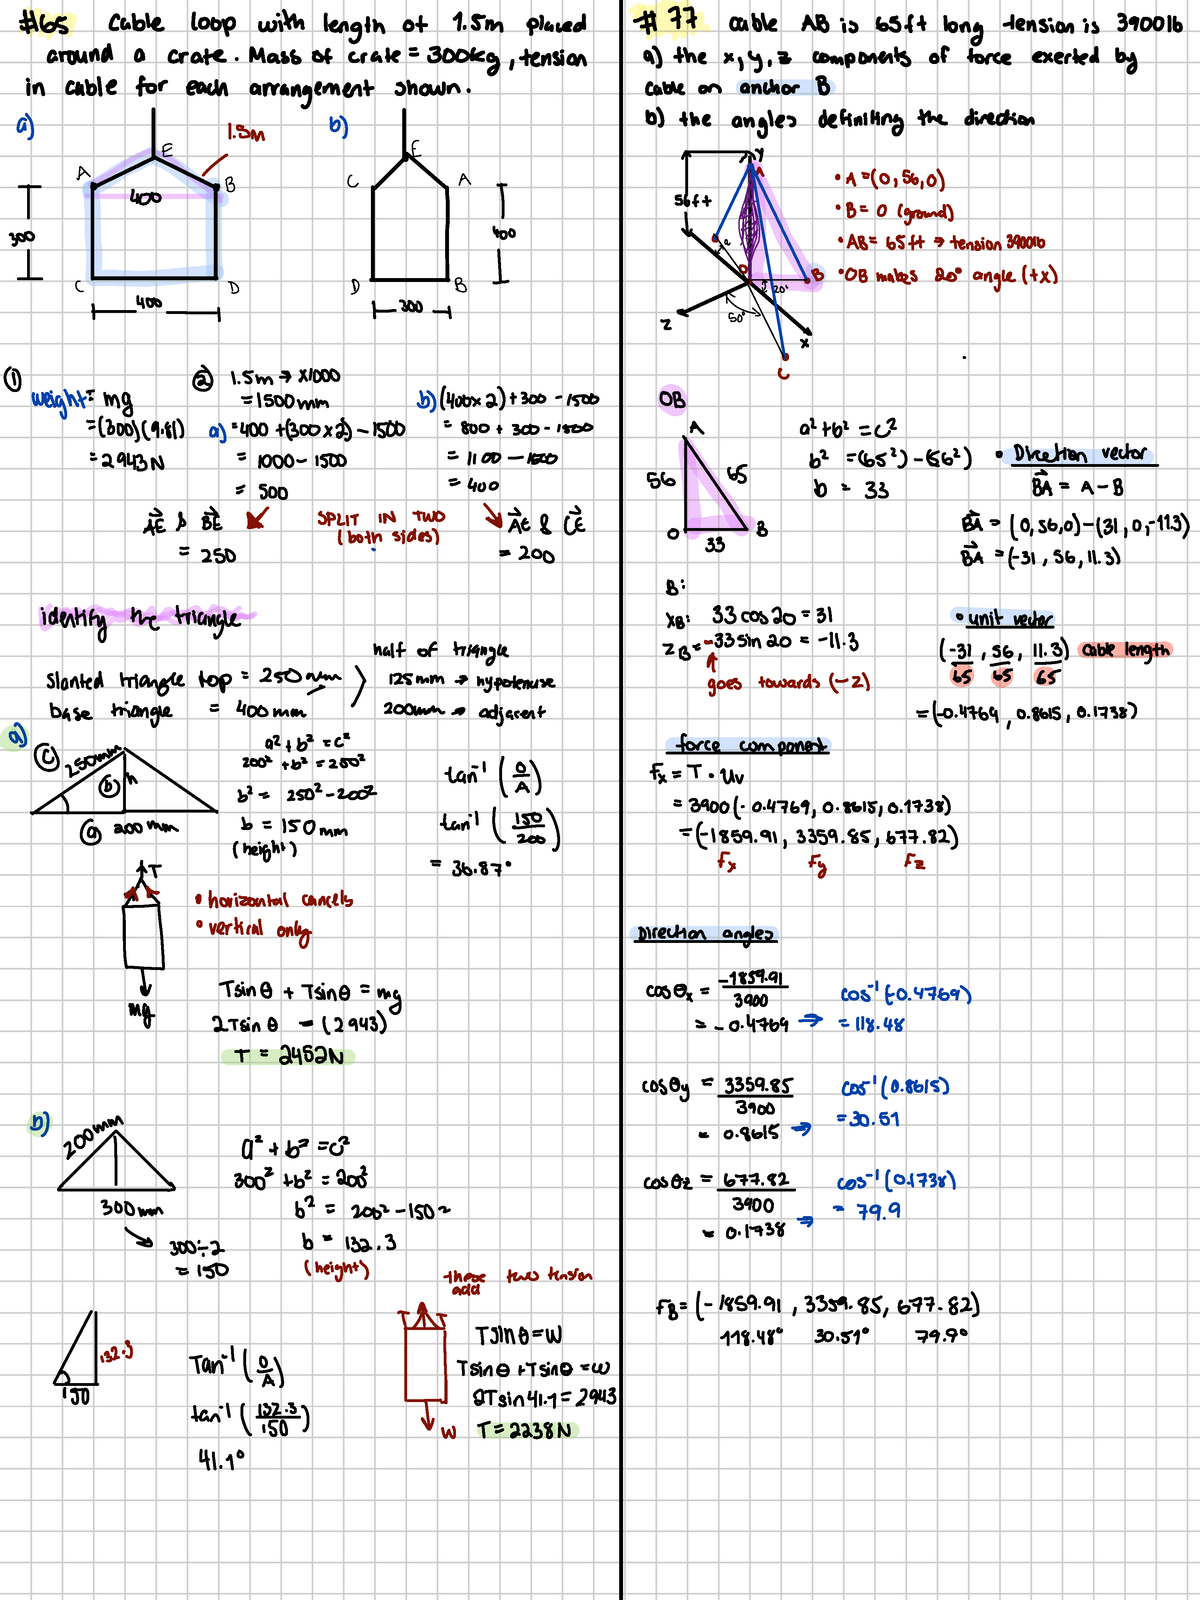 #65 Cable loop with length of 1.5m placed
around a crate. Mass of crate = 300kg, tension
in cable for each arrangement shown.
a)
1.5m
E
A
B
400
300
C
D
400
b)
E
C
A
400
D
B
300
①
weight = mg
= (300)(9.81)
= 2943N
② 1.5m → x1000
= 1500mm
a) = 400 + (300x2) - 1500
= 1000 - 1500
= 500
AE & BE
= 250
SPLIT IN TWO
(both sides)
b) (400x2) + 300 - 1500
= 800 + 300 - 1500
= 1100 - 1500
= 400
AE & CE
= 200
identify the triangle
slanted triangle top = 250mm
base triangle = 400mm
half of triangle
125mm → hypotenuse
200mm → adjacent
a)
c
250mm
b
h
a
200mm
a² + b² = c²
200² + b² = 250²
b² = 250² - 200²
b = 150mm
(height)
tan⁻¹ (O/A)
tan⁻¹ (150/200)
= 36.87°
T
mg
• horizontal cancels
• vertical only
Tsinθ + Tsinθ = mg
2Tsinθ = (2943)
T = 2452N
b)
200mm
300mm
300÷2
= 150
a² + b² = c²
300² + b² = 200²
b² = 200² - 150²
b = 132.3
(height)
132.3
150
Tan⁻¹ (O/A)
tan⁻¹ (132.3/150)
41.1°
these two tension
add
T
T
W
TsINθ = W
Tsinθ + Tsinθ = W
2Tsin41.1 = 2943
T = 2238N
#77 cable AB is 65ft long tension is 3900lb
a) the x, y, z components of force exerted by
cable on anchor B
b) the angles definiting the direction
y
A
56ft
O
B
20°
50°
z
x
C
• A = (0, 56, 0)
• B = 0 (ground)
• AB = 65ft → tension 3900lb
• OB makes 20° angle (+x)
OB
A
56
65
O
33
B
a² + b² = c²
b² = (65²) - (56²)
b = 33
• Direction vector
BA = A - B
BA = (0, 56, 0) - (31, 0, -11.3)
BA = (-31, 56, 11.3)
B:
XB: 33 cos 20 = 31
ZB = -33 sin 20 = -11.3
goes towards (-z)
• unit vector
(-31/65, 56/65, 11.3/65) cable length
= (-0.4769, 0.8615, 0.1738)
force component
Fx = T · Uv
= 3900 (-0.4769, 0.8615, 0.1738)
= (-1859.91, 3359.85, 677.82)
Fx Fy Fz
Direction angles
cosθx = -1859.91/3900
= -0.4769 →
cos⁻¹ (-0.4769)
= 118.48
cosθy = 3359.85/3900
= 0.8615 →
cos⁻¹ (0.8615)
= 30.51
cosθz = 677.82/3900
= 0.1738 →
cos⁻¹ (0.1738)
= 79.9
FB = (-1859.91, 3359.85, 677.82)
118.48° 30.51° 79.9°